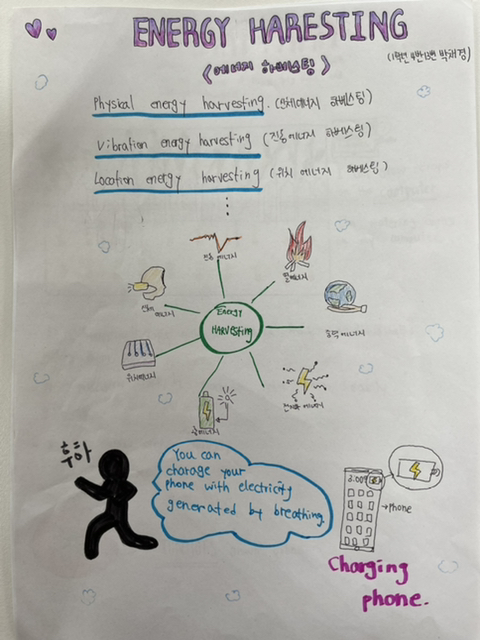 ENERGY HARESTING
<에너지 하베스팅>
Physical energy harvesting. (인체에너지 하베스팅)
Vibration energy harvesting (진동에너지 하베스팅)
Location energy harvesting (위치 에너지 하베스팅)
진동 에너지
열에너지
에너지
ENERGY
HARVESTING
중력에너지
위치에너지
전자파 에너지
에너지
후하
You can
charage your
phone with electricity
generated by breathing.
phone
Charging
phone.